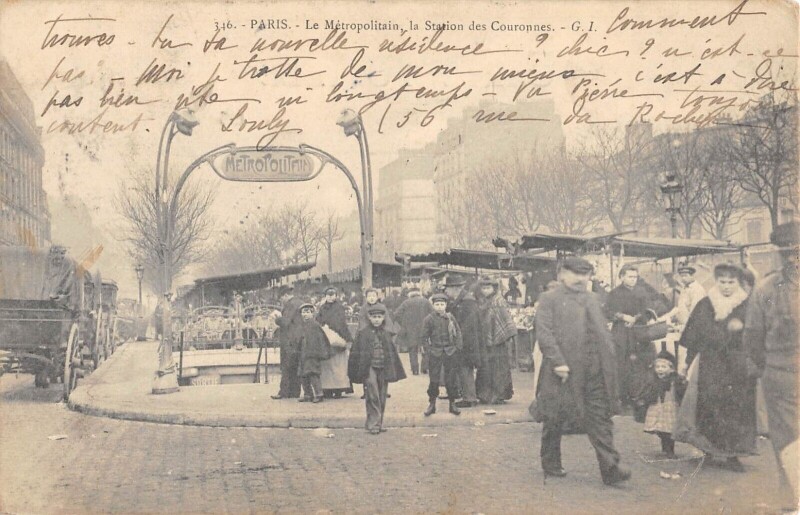 346. - PARIS. - Le Métropolitain, la Station des Couronnes. - G. I. Comment
trouves-tu ta nouvelle résidence ? chic ? n'est-ce
pas - Moi je trotte de mon mieux - c'est à dire
pas bien vite ni longtemps - Pierre toujours
content. Louly (56 rue de la
METROPOLITAIN